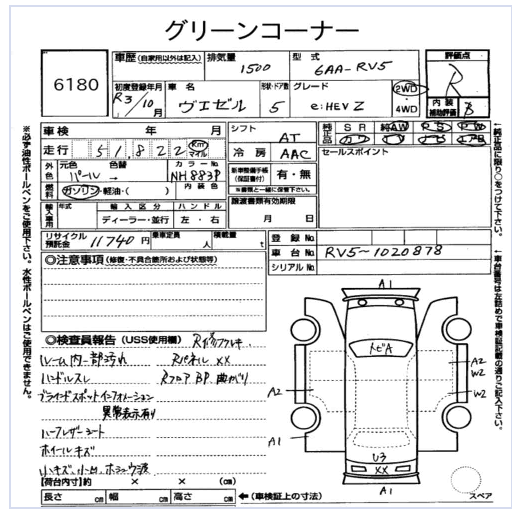 グリーンコーナー
6180
車歴 (自家用以外は記入) 排気量 1500 型式 6AA-RV5 評価点 R
初度登録年月 R3/10月 車名 ヴェゼル 形状・ドア数 5 グレード e:HEV Z 2WD 4WD 内装補助評価 B
車検 年 月 シフト AT 純正品 SR AW PS PW
走行 51,822 Km マイル 冷房 AAC セールスポイント
外色 元色 パール 色替 → カラーNo. NH883P 新車整備手帳(保証書付) 有・無
燃料 ガソリン・軽油・( ) 内装色 ※書類と一緒に保管下さい。
輸入車用 年式 輸入区分 ディーラー・並行 ハンドル 左・右 譲渡書類有効期限 月 日
リサイクル預託金 11740円 乗車定員 人 積載量 t 登録No.
車台No. RV5-1020878
シリアルNo.
◎注意事項 (修復・不具合箇所および状態等)
◎検査員報告 (USS使用欄) R修フルキ
ルーム内一部汚れ Rパネル XX
ハンドルスレ Rフロア BP 曲がり
ブラインドスポットインフォメーション
異常表示有り
ハーフレザーシート
ホイールキズ
小キズ、小凹、
【荷台内寸】約 × × (cm)
長さ cm 幅 cm 高さ cm ←(車検証上の寸法)
※必ず油性ボールペンをご使用下さい。水性ボールペンはご使用できません。
←純正品に限り○をつけて下さい。
←車台番号は左詰めで車検証記載の通りご記入下さい。
A1
トビA
A2
W2
A2
W2
A1
U3
XX
A1
スペア